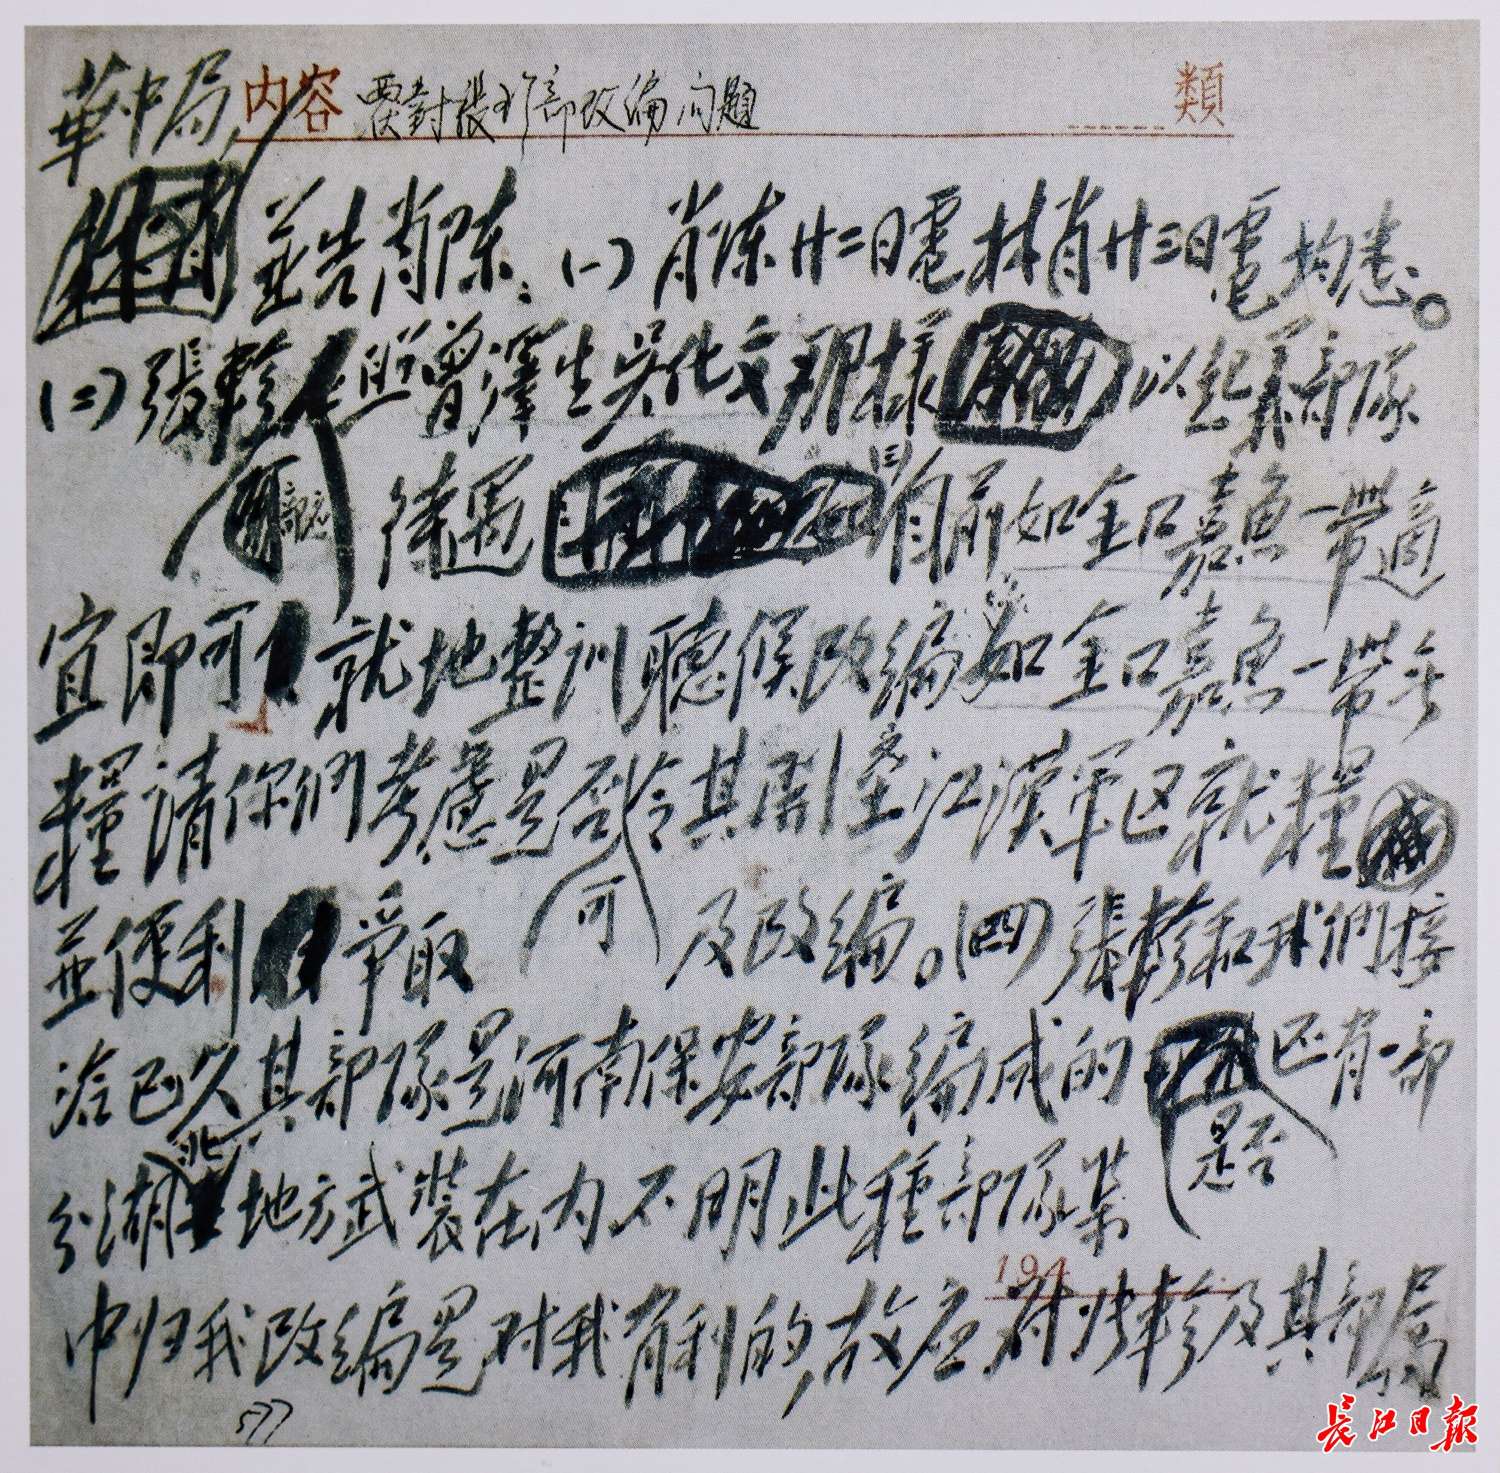 華中局,
内容 覆對張軫部改编问題 類
並告肖陈：(一)肖陈廿二日電林肖廿三日電均悉。
(二)張軫部應照曾澤生吴化文那樣以起義部隊
待遇(三)目前如金口嘉魚一带適
宜即可就地整训聽候改编如金口嘉魚一带無
糧請你們考慮是否可令其開至江漢军区就糧
並便利爭取及改编。(四)張軫和我們接
洽已久其部隊是河南保安部隊编成的是否还有一部
分湖北地方武装在内不明此種部隊集
中归我改编是对我有利的,故应对張軫及其部属
194
577
长江日報